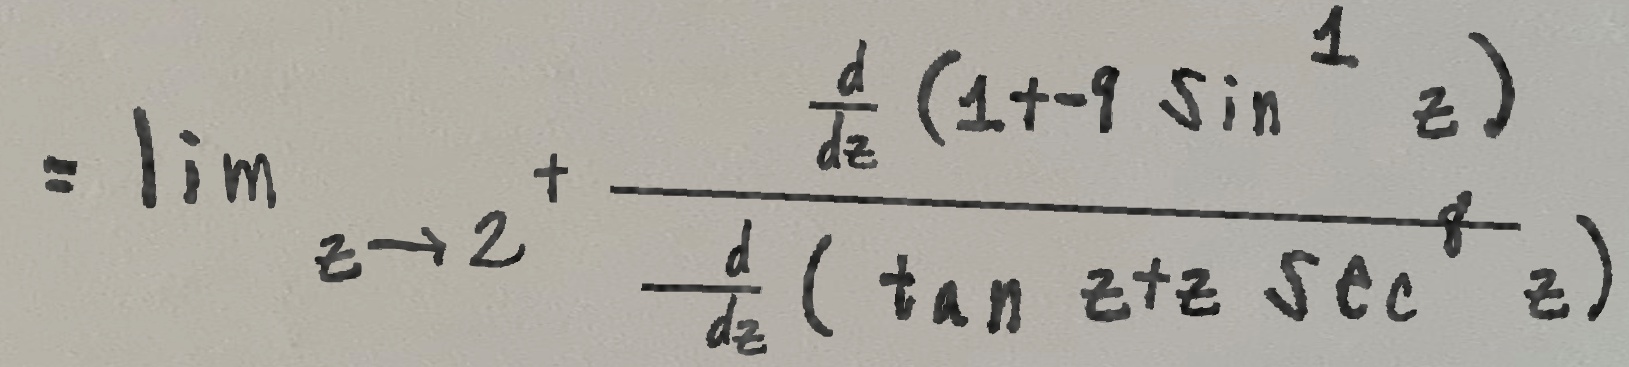 = \lim_{z \to 2^+} \frac{\frac{d}{dz}(1+-9 \sin^1 z)}{\frac{d}{dz}(\tan z+z \sec^8 z)}